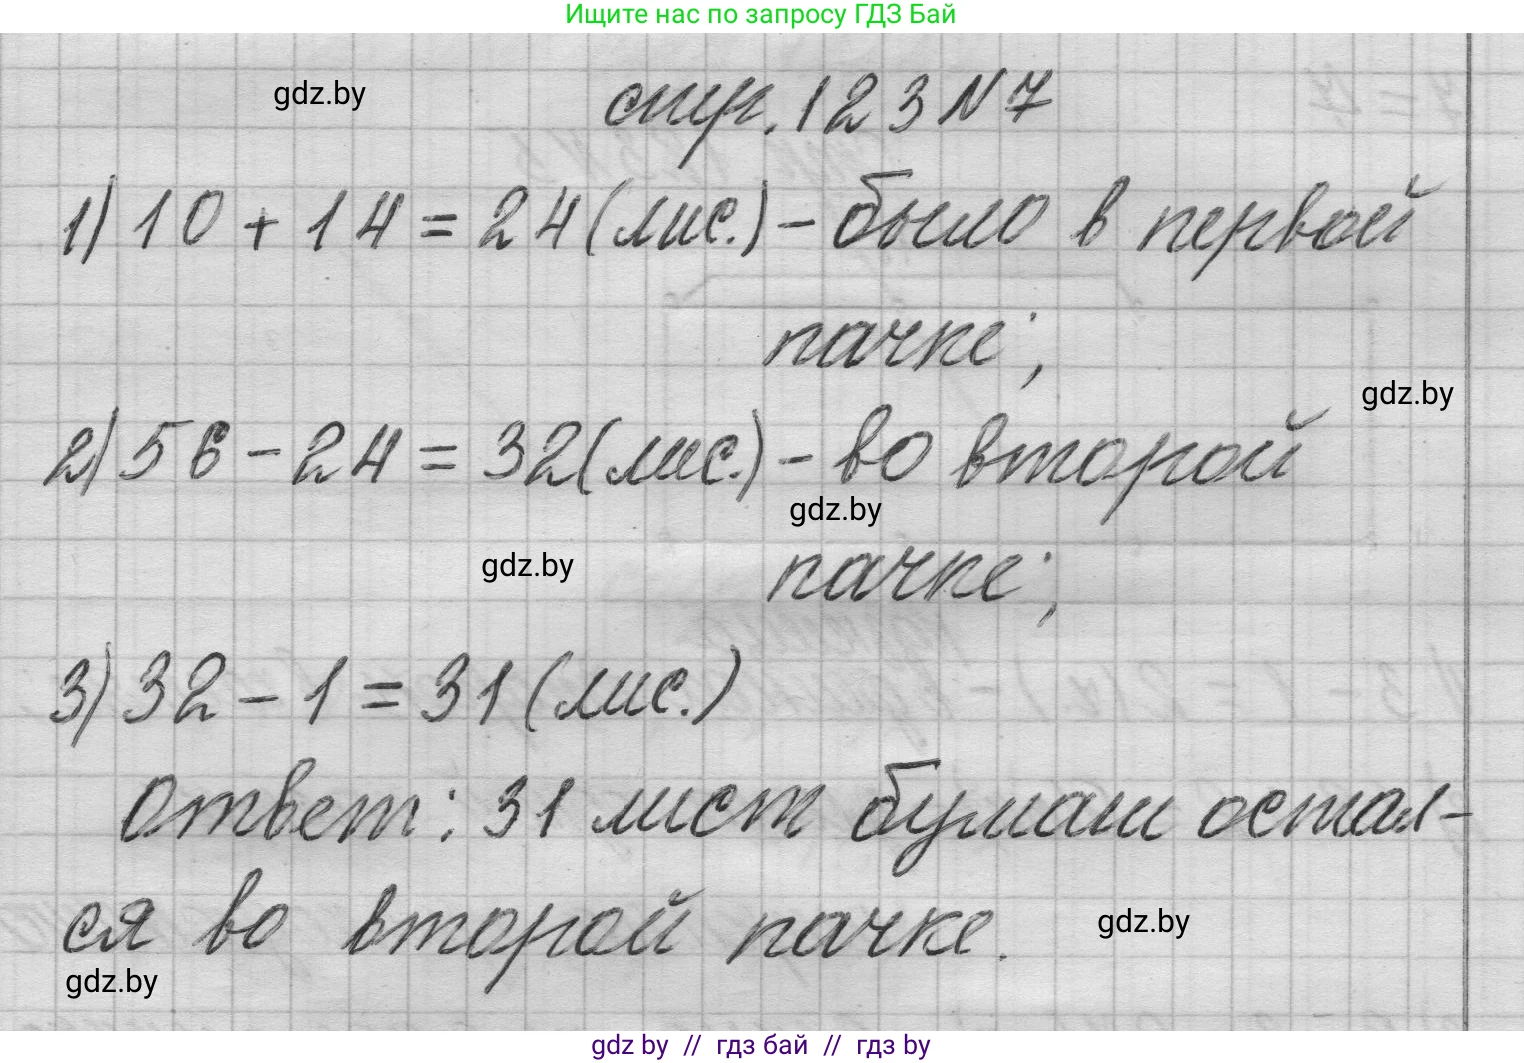 Ищите нас по запросу ГДЗ Бай
gdz.by
стр. 123 N 7
1) 10 + 14 = 24 (лис.) - было в первой
пачке;
gdz.by
2) 56 - 24 = 32 (лис.) - во второй
gdz.by
пачке;
gdz.by
3) 32 - 1 = 31 (лис.)
Ответ: 31 лист бумаги остал-
ся во второй пачке.
gdz.by
gdz.by
gdz by // гдз бай // гдз by